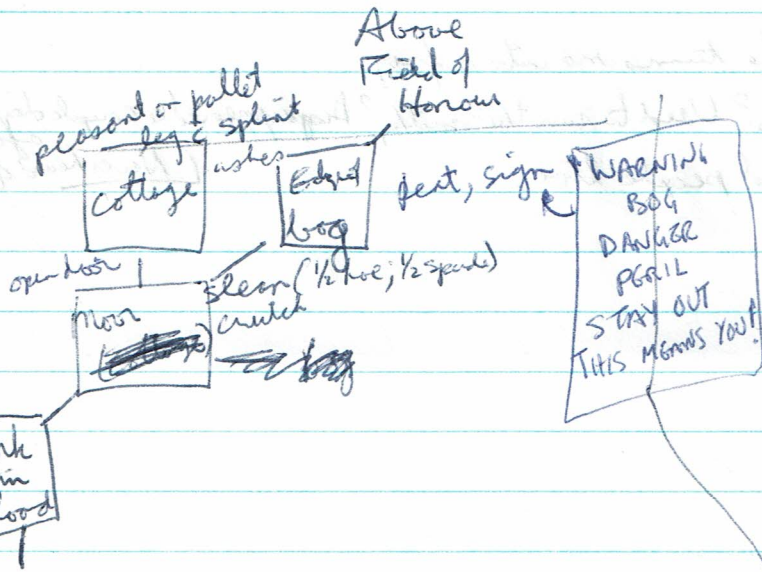 Above
Field of
Honour
peasant on pallet
leg c splint
ashes
Cottage
Edge of
bog
peat, sign
WARNING
BOG
DANGER
PERIL
STAY OUT
THIS MEANS YOU!
open door
slean (1/2 hoe; 1/2 spade)
crutch
Moor
in